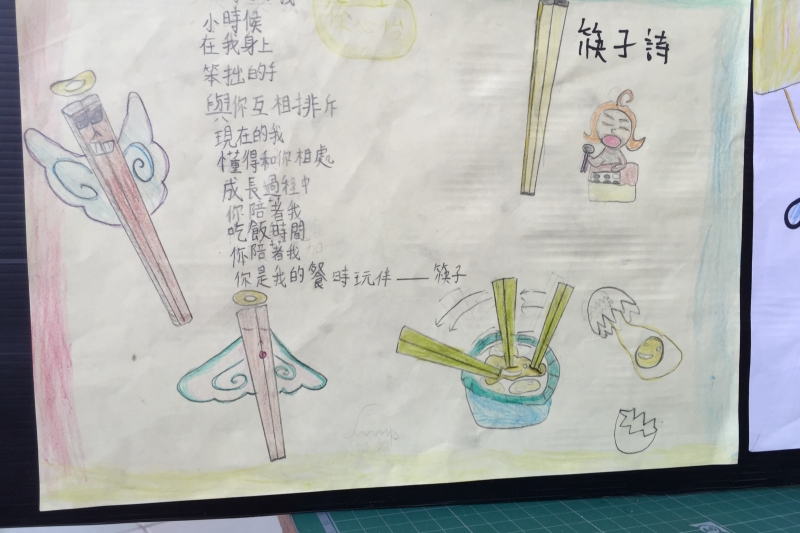 筷子詩
小時候
在我身上
笨拙的手
與你互相排斥
現在的我
懂得和你相處
成長過程中
你陪著我
吃飯時間
你陪著我
你是我的餐時玩伴——筷子